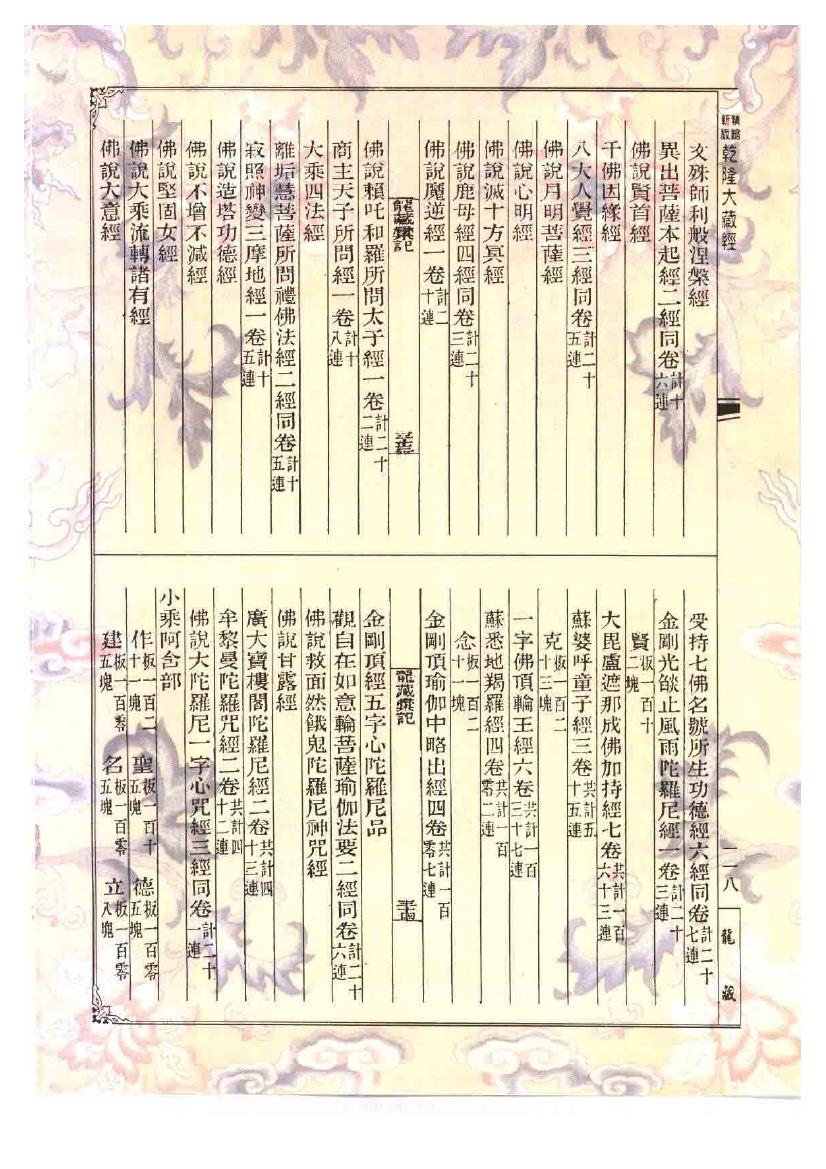 精縮新版乾隆大藏經
文殊師利般涅槃經
異出菩薩本起經二經同卷計十六連
佛說賢首經
千佛因緣經
八大人覺經三經同卷計二十五連
佛說月明菩薩經
佛說心明經
佛說滅十方冥經
佛說鹿母經四經同卷計二十三連
佛說魔逆經一卷計二十連
龍藏彙記
佛說賴吒和羅所問太子經一卷計二十二連
商主天子所問經一卷計十八連
大乘四法經
離垢慧菩薩所問禮佛法經二經同卷計十五連
寂照神變三摩地經一卷計十五連
佛說造塔功德經
佛說不增不減經
佛說堅固女經
佛說大乘流轉諸有經
佛說大意經
受持七佛名號所生功德經六經同卷計二十七連
金剛光燄止風雨陀羅尼經一卷計二十三連
賢板一百十二塊
大毘盧遮那成佛加持經七卷共計一百六十三連
蘇婆呼童子經三卷共計五十五連
克板一百二十三塊
一字佛頂輪王經六卷共計一百三十七連
蘇悉地羯羅經四卷共計一百零二連
念板一百二十一塊
金剛頂瑜伽中略出經四卷共計一百零七連
龍藏彙記
金剛頂經五字心陀羅尼品
觀自在如意輪菩薩瑜伽法要二經同卷計二十六連
佛說救面然餓鬼陀羅尼神咒經
佛說甘露經
廣大寶樓閣陀羅尼經二卷共計四十三連
牟黎曼陀羅咒經二卷共計四十二連
佛說大陀羅尼一字心咒經三經同卷計二十一連
小乘阿含部
作板一百二十一塊 聖板一百十五塊 德板一百零五塊
建板一百零五塊 名板一百零五塊 立板一百零八塊
二一八
龍藏